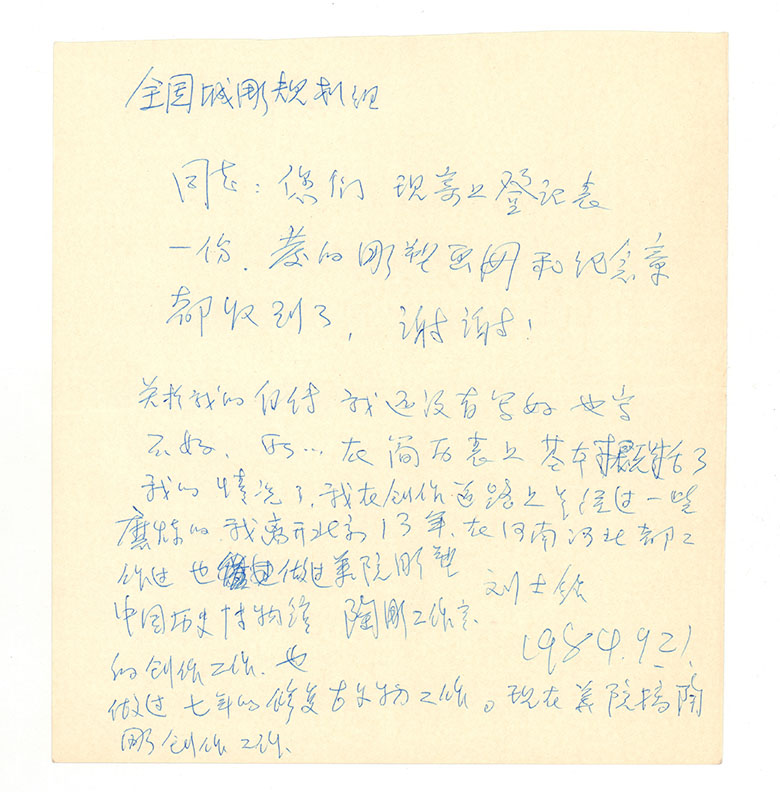 全国城雕规划组
同志：您们 现寄上登记表
一份．发的雕塑画册和纪念章
都收到了，谢谢！
关于我的自传 我还没有写好 也写
不好、所…在简历表上 基本概括了
我的情况了，我在创作道路上是经过一些
磨炼的．我离开北京13年．在河南河北都工
作过 也做过美院雕塑
刘士铭
中国历史博物馆 陶雕工作室
1984.9.21
的创作工作．也
做过七年的修复古文物工作。现在美院搞陶
雕创作工作．